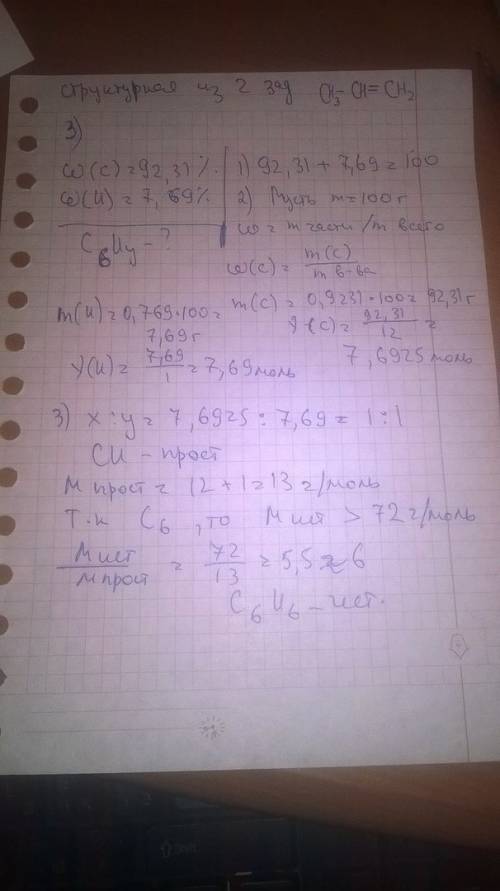 структурная из 2 зад CH₃-CH=CH₂
3)
ω(C)=92,31%
ω(H)=7,69%
C₆Hy-?
1) 92,31+7,69=100
2) Пусть m=100г
ω=m части/m всего
ω(C)= m(C)/m в-ва
m(H)=0,769·100=
7,69г
m(C)=0,9231·100=92,31г
ν(C)= 92,31/12 =
7,6925 моль
ν(H)= 7,69/1 =7,69моль
3) x:y=7,6925:7,69=1:1
CH-прост
M прост=12+1=13г/моль
Т.к C₆, то M ист > 72г/моль
M ист/M прост = 72/13 =5,5≈6
C₆H₆-ист.
Shift